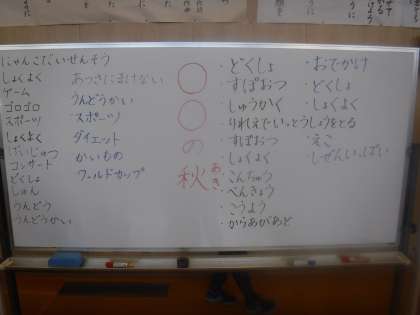 にゃんこだいせんそう
しょくよく
ゲーム
ゴロゴロ
スポーツ
しょくよく
げいじゅつ
コンサート
どくしょ
しゅん
うんどう
うんどうかい
あつさにまけない
うんどうかい
スポーツ
ダイエット
かいもの
ワールドカップ
〇〇の秋
あき
・どくしょ
・すぽおつ
・しゅうかく
・りれえでいっとうしょうをとる
・すぽおつ
・しょくよく
・こんちゅう
・べんきょう
・こうよう
・からあがあど
・おでかけ
・どくしょ
・しょくよく
・えこ
・しぜんいっぱい